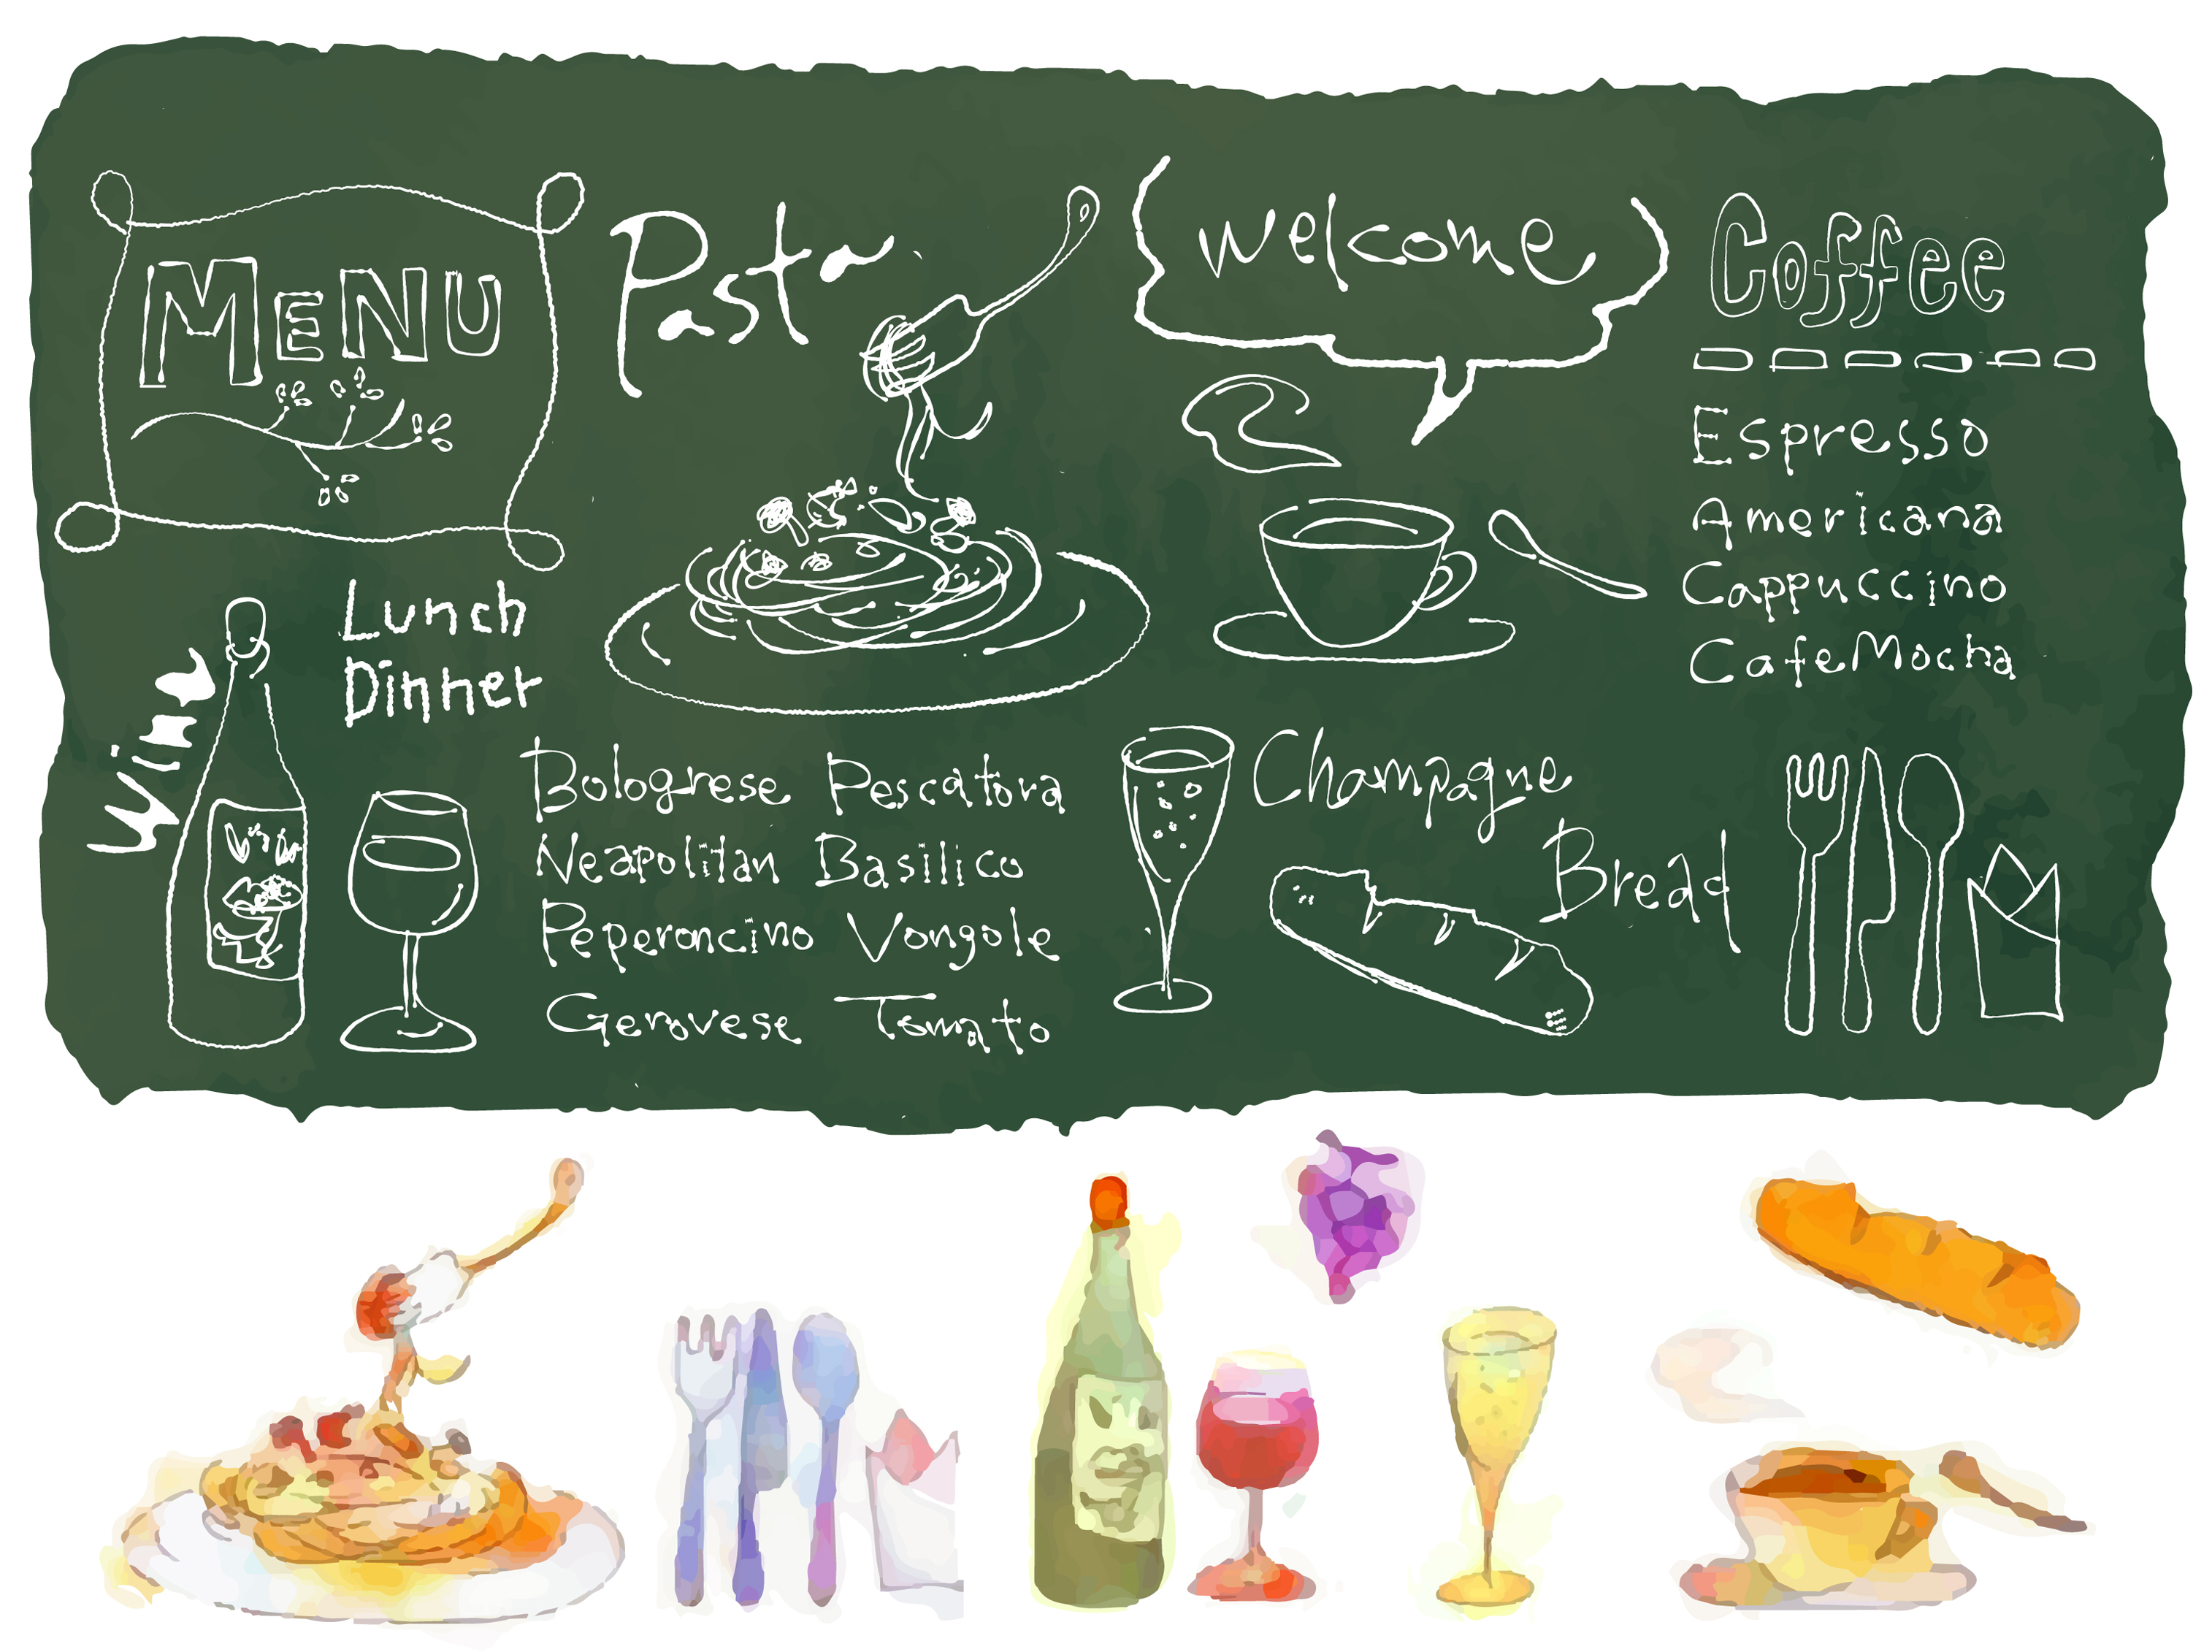 MENU
Pasta
Welcome
Coffee
Espresso
Americana
Cappuccino
CafeMocha
Lunch
Dinner
Wine
Bolognese Pescatora
Neapolitan Basilico
Peperoncino Vongole
Genovese Tomato
Champagne
Bread